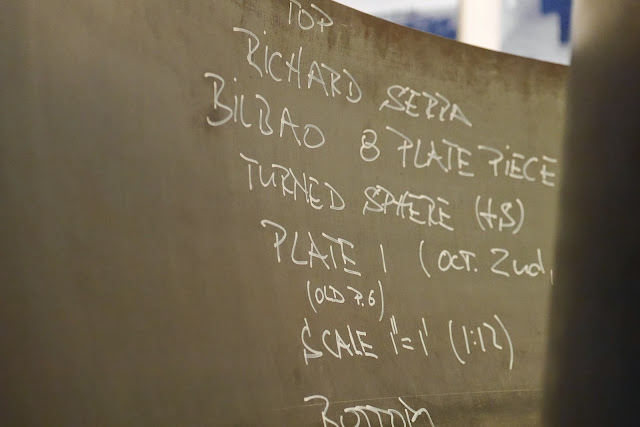 TOP
RiCHARD SERRA
BiLBAO 8 PLATE PiECE
TURNED SPHERE (tS)
PLATE 1 (OCT. 2nd,
(OLD P.6)
SCALE 1"=1' (1:12)
BOTTOM